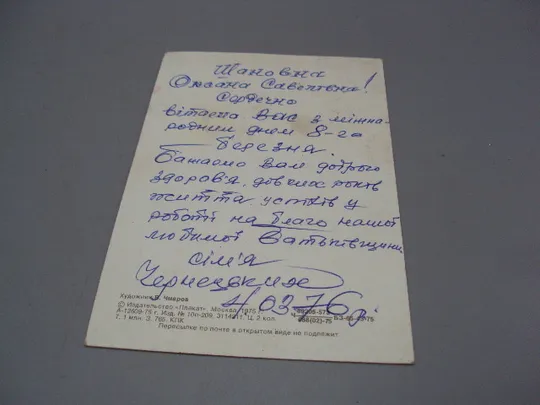 Шановна
Оксана Савелівна!
Сердечно
вітаємо Вас з міжна-
родним днем 8-го
Березня.
Бажаємо Вам доброго
здоров'я, довгих років
життя успіхів у
роботі на благо нашої
любимої Батьківщини
сім'я
Чернецьких
4.03.76 р.
Художник В. Чмаров
© Издательство «Плакат». Москва 1975 г.
А-12809-75 г. Изд. № 10п-209.
7, 1 млн. З. 765. КПК
БЗ-65-43-75
Пересылке по почте в открытом виде не подлежит